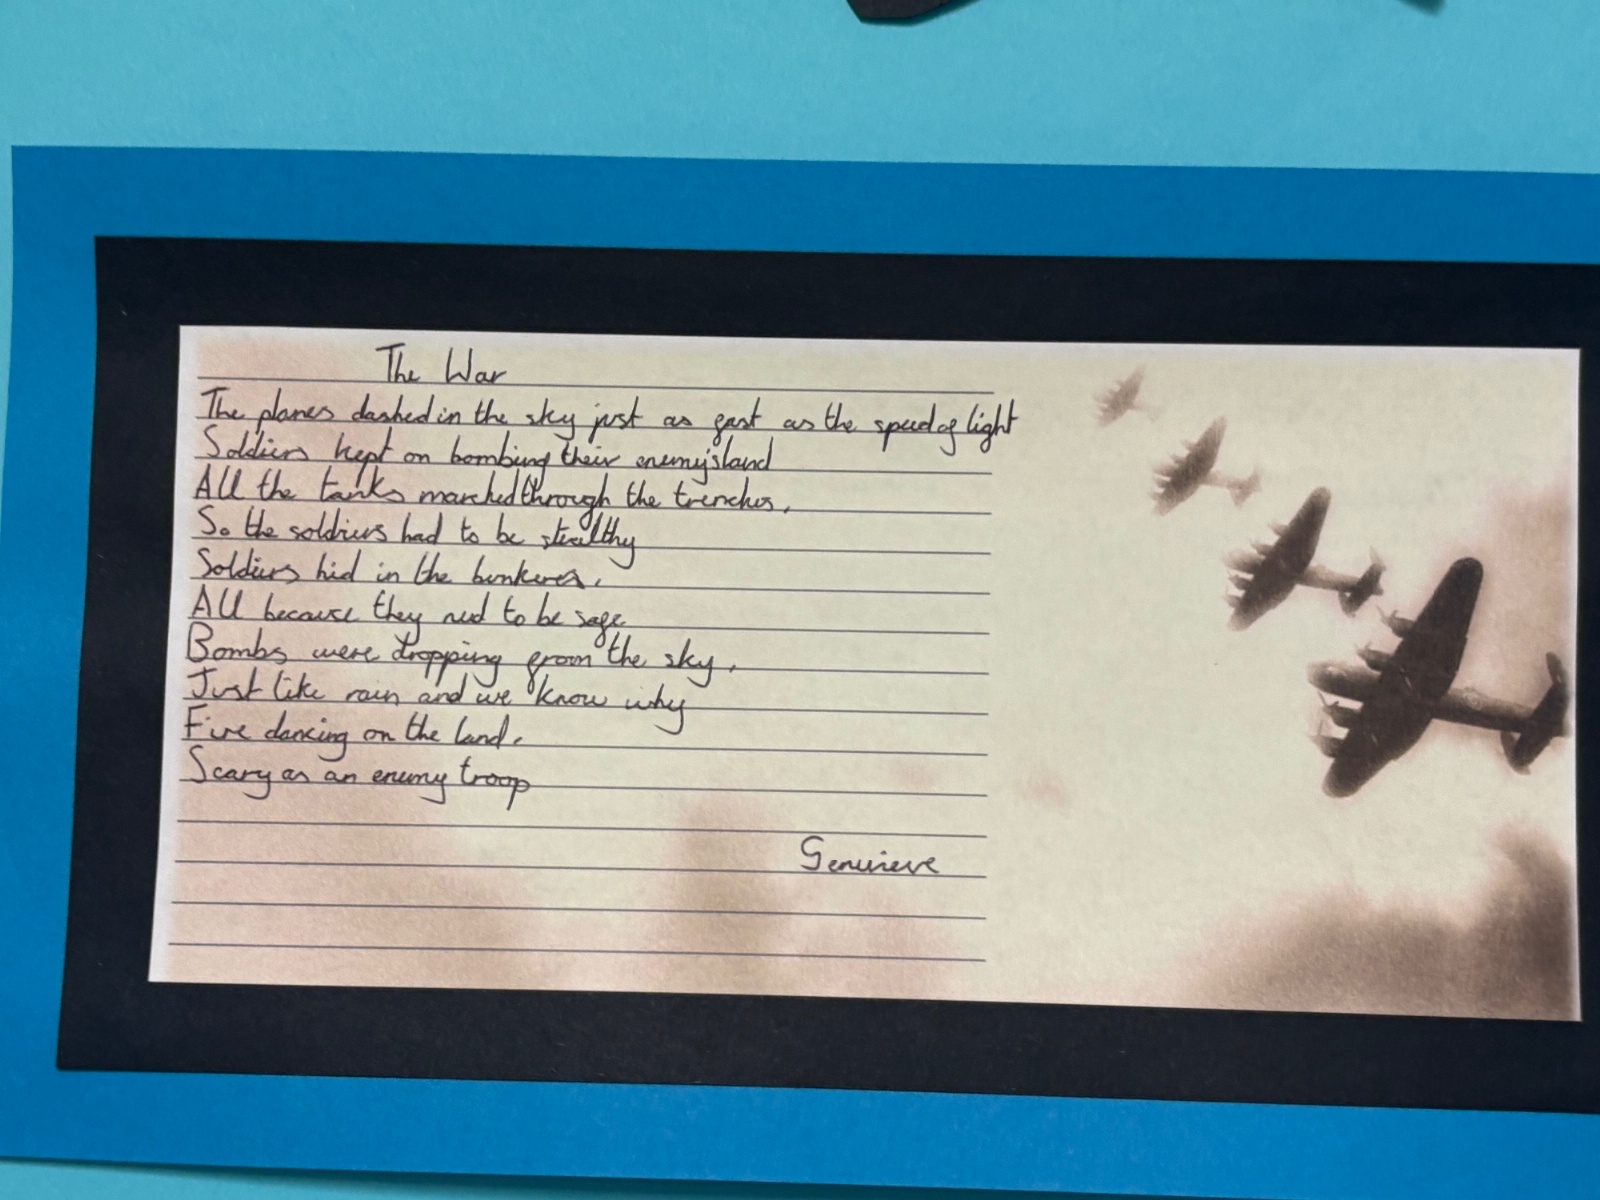 The War
The planes dashed in the sky just as fast as the speed of light
Soldiers kept on bombing their enemy's land
All the tanks marched through the trenches,
So the soldiers had to be stealthy
Soldiers hid in the bunkeres,
All because they need to be safe
Bombs were dropping from the sky,
Just like rain and we know why
Fire dancing on the land,
Scary as an enemy troop
Genevieve